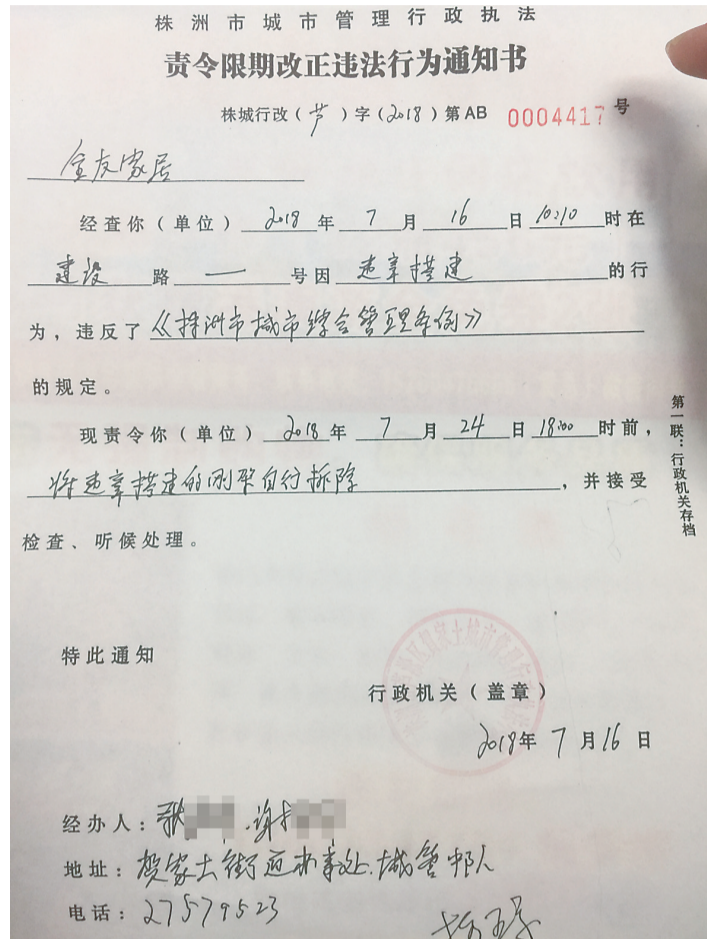 株洲市城市管理行政执法
责令限期改正违法行为通知书
株城行改（芦）字（2018）第AB 0004417号
金友家居
经查你（单位）2018年7月16日10:10时在
建设路一号因违章搭建的行
为，违反了《株洲市城市综合管理条例》
的规定。
现责令你（单位）2018年7月24日18:00时前，
将违章搭建的刚架自行拆除，并接受
检查、听候处理。
第一联：行政机关存档
特此通知
行政机关（盖章）
2018年7月16日
经办人：
地址：贺家土街道办事处城管中队
电话：27579523